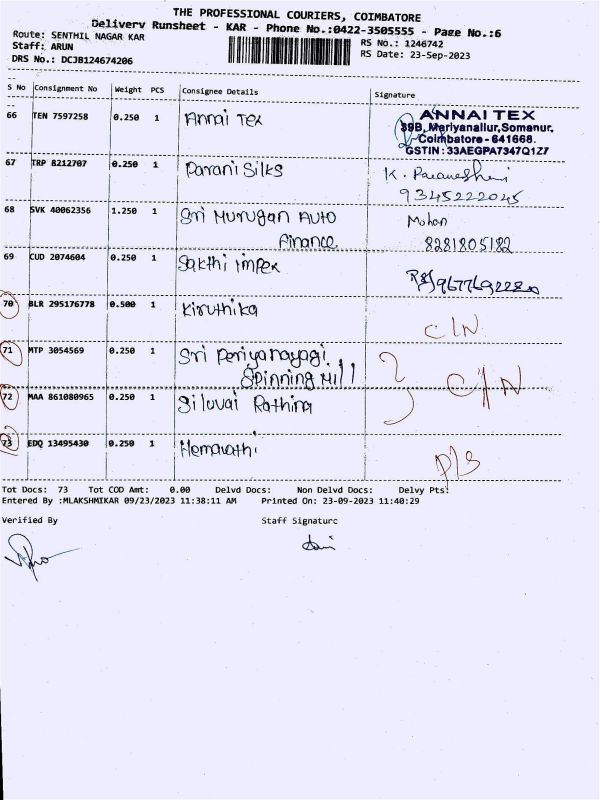 THE PROFESSIONAL COURIERS, COIMBATORE
Delivery Runsheet - KAR - Phone No.:0422-3505555 - Page No.:6
Route: SENTHIL NAGAR KAR
RS No.: 1246742
Staff: ARUN
RS Date: 23-Sep-2023
DRS No.: DCJB124674206
S No Consignment No Weight PCS Consignee Details Signature
66 TEN 7597258 0.250 1 Annai Tex
ANNAI TEX
39B, Mariyanallur, Somanur.
Coimbatore - 641668.
GSTIN : 33AEGPA7347Q1Z7
67 TRP 8212707 0.250 1 Parani Silks K.
9345222045
68 SVK 40062356 1.250 1 Sri Murugan Auto Mohan
Finance 8281805182
69 CUD 2074604 0.250 1 Sakthi impex
70 BLR 295176778 0.500 1 Kiruthika
C/N
71 MTP 3054569 0.250 1 Sri Periyanayagi
Spinning Mill C/N
72 MAA 861080965 0.250 1 Siluvai Rathina
73 EDQ 13495430 0.250 1 Hemavathi
P/S
Tot Docs: 73 Tot COD Amt: 0.00 Delvd Docs: Non Delvd Docs: Delvy Pts:
Entered By :MLAKSHMIKAR 09/23/2023 11:38:11 AM Printed On: 23-09-2023 11:40:29
Verified By Staff Signature